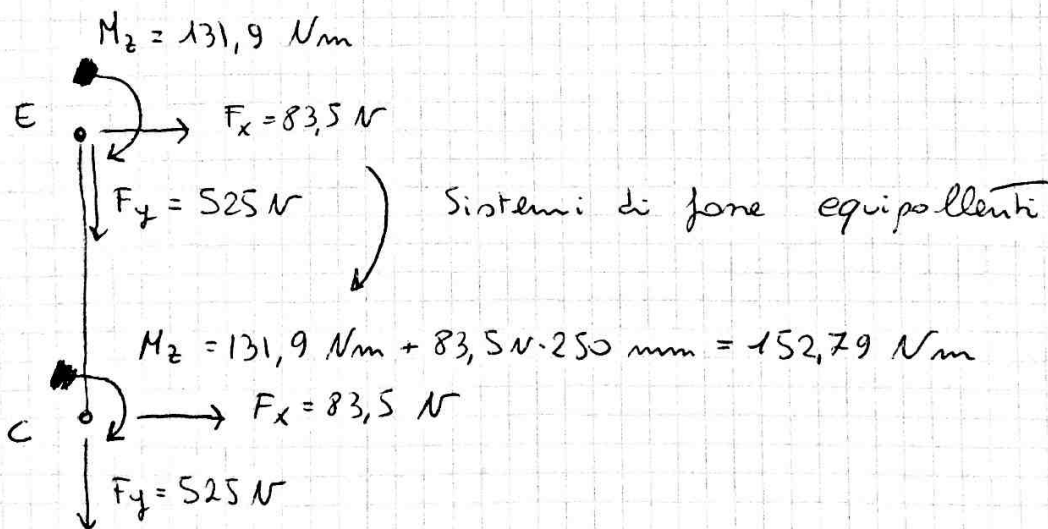 M_z = 131,9 Nm
E
F_x = 83,5 N
F_y = 525 N
Sistemi di forze equipollenti
M_z = 131,9 Nm + 83,5 N · 250 mm = 152,79 Nm
F_x = 83,5 N
C
F_y = 525 N